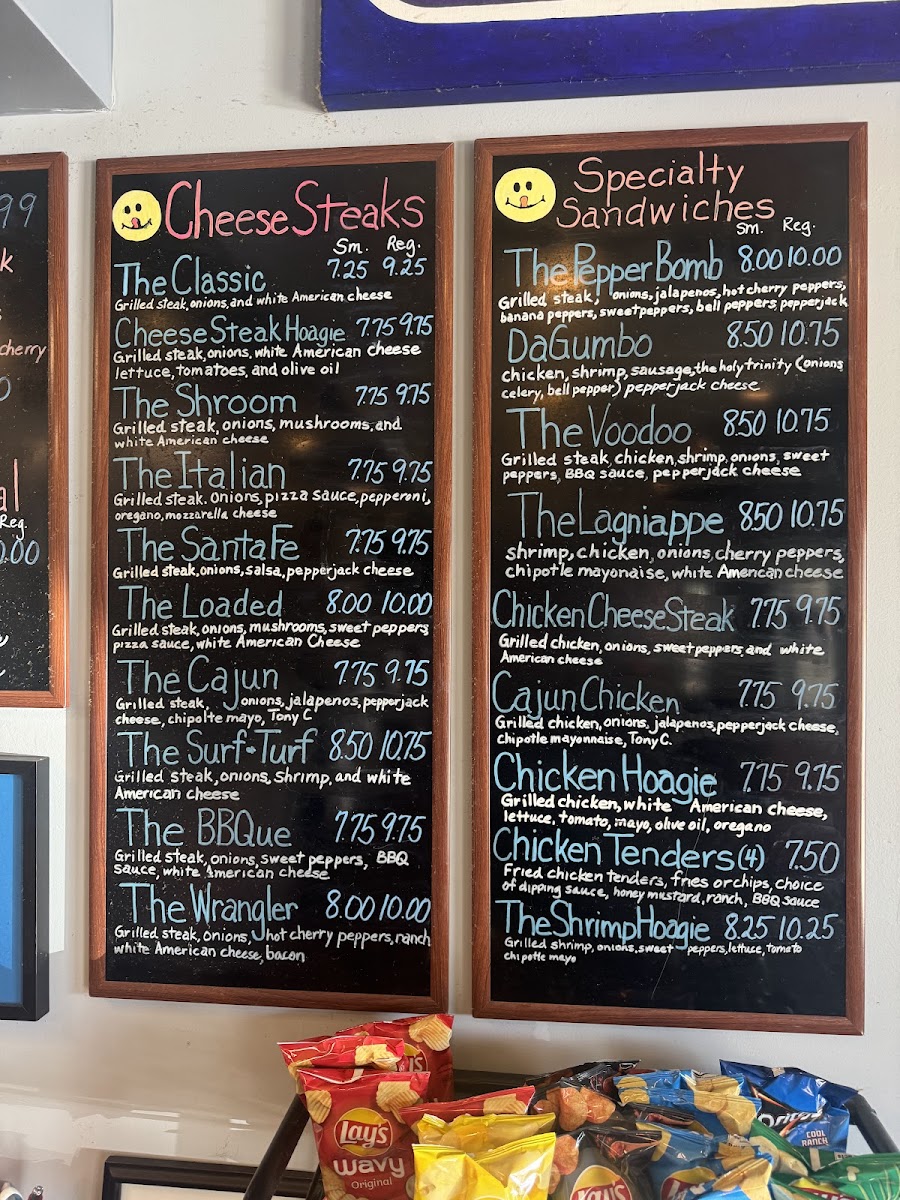 99
k
cherry
0
al
Reg.
0.00
e
Cheese Steaks
Sm. Reg.
The Classic 7.25 9.25
Grilled steak, onions, and white American cheese
Cheese Steak Hoagie 7.75 9.75
Grilled steak, onions, white American cheese
lettuce, tomatoes, and olive oil
The Shroom 7.75 9.75
Grilled steak, onions, mushrooms, and
white American cheese
The Italian 7.75 9.75
Grilled steak. Onions, pizza sauce, pepperoni,
oregano, mozzarella cheese
The Santa Fe 7.75 9.75
Grilled steak, onions, salsa, pepperjack cheese
The Loaded 8.00 10.00
Grilled steak, onions, mushrooms, sweet peppers,
pizza sauce, white American Cheese
The Cajun 7.75 9.75
Grilled steak, onions, jalapenos, pepperjack
cheese, chipolte mayo, Tony C
The Surf-Turf 8.50 10.75
Grilled steak, onions, shrimp, and white
American cheese
The BBQue 7.75 9.75
Grilled steak, onions, sweet peppers, BBQ
sauce, white American cheese
The Wrangler 8.00 10.00
Grilled steak, onions, hot cherry peppers, ranch
white American cheese, bacon
Specialty
Sandwiches
Sm. Reg.
The Pepper Bomb 8.00 10.00
Grilled steak, onions, jalapenos, hot cherry peppers,
banana peppers, sweet peppers, bell peppers, pepperjack
DaGumbo 8.50 10.75
chicken, shrimp, sausage, the holy trinity (onions
celery, bell pepper) pepperjack cheese
The Voodoo 8.50 10.75
Grilled steak, chicken, shrimp, onions, sweet
peppers, BBQ sauce, pepperjack cheese
The Lagniappe 8.50 10.75
shrimp, chicken, onions, cherry peppers,
chipotle mayonaise, white American cheese
Chicken Cheese Steak 7.75 9.75
Grilled chicken, onions, sweet peppers, and white
American cheese
Cajun Chicken 7.75 9.75
Grilled chicken, onions, jalapenos, pepperjack cheese,
chipotle mayonnaise, Tony C.
Chicken Hoagie 7.75 9.75
Grilled chicken, white American cheese,
lettuce, tomato, mayo, olive oil, oregano
Chicken Tenders (4) 7.50
Fried chicken tenders, fries or chips, choice
of dipping sauce, honey mustard, ranch, BBQ sauce
The Shrimp Hoagie 8.25 10.25
Grilled shrimp, onions, sweet peppers, lettuce, tomato
chipotle mayo
Lay's
wavy
Original
Lay's
Doritos
COOL
RANCH